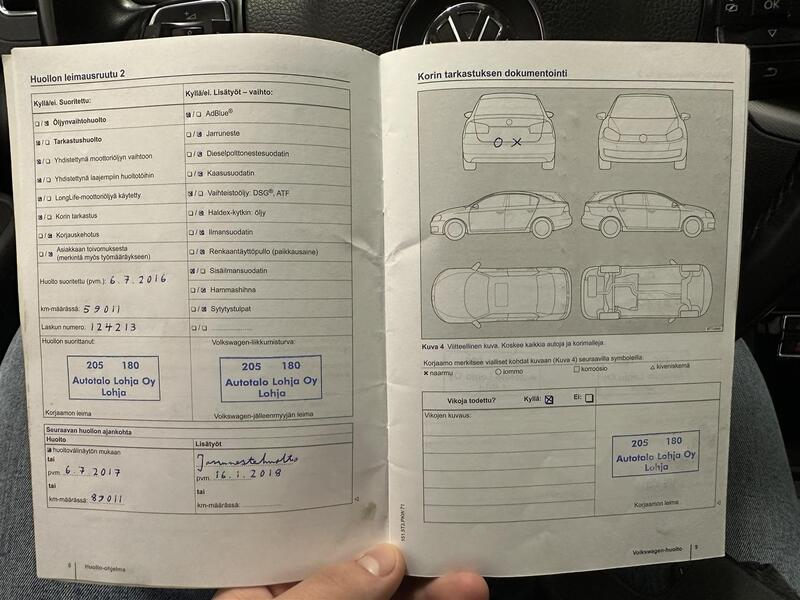 Huollon leimausruutu 2
Kyllä/ei. Suoritettu:
☐ / ☒ Öljynvaihtohuolto
☒ / ☐ Tarkastushuolto
☒ / ☐ Yhdistettynä moottoriöljyn vaihtoon
☒ / ☐ Yhdistettynä laajempiin huoltotöihin
☒ / ☐ LongLife-moottoriöljyä käytetty
☒ / ☐ Korin tarkastus
☐ / ☒ Korjauskehotus
☐ / ☒ Asiakkaan toivomuksesta
(merkintä myös työmääräykseen)
Huolto suoritettu (pvm.) 6.7.2016
km-määrässä: 59011
Laskun numero: 124213
Huollon suorittanut:
205 180
Autotalo Lohja Oy
Lohja
Korjaamon leima
Kyllä/ei. Lisätyöt – vaihto:
☒ / ☐ AdBlue®
☐ / ☒ Jarruneste
☐ / ☒ Dieselpolttonestesuodatin
☐ / ☒ Kaasusuodatin
☒ / ☐ Vaihteistoöljy: DSG®, ATF
☐ / ☒ Haldex-kytkin: öljy
☐ / ☒ Ilmansuodatin
☐ / ☒ Renkaantäyttöpullo (paikkausaine)
☒ / ☐ Sisäilmansuodatin
☐ / ☒ Hammashihna
☐ / ☒ Sytytystulpat
☐ / ☐
Volkswagen-liikkumisturva:
205 180
Autotalo Lohja Oy
Lohja
Volkswagen-jälleenmyyjän leima
Seuraavan huollon ajankohta
Huolto
☒ huoltovälinäytön mukaan
tai
pvm. 6.7.2017
tai
km-määrässä: 89011
Lisätyöt
Jarrunestehuolto
pvm. 16.1.2018
tai
km-määrässä:
8 Huolto-ohjelma
Korin tarkastuksen dokumentointi
O X
Kuva 4 Viitteellinen kuva. Koskee kaikkia autoja ja korimalleja.
Korjaamo merkitsee vialliset kohdat kuvaan (Kuva 4) seuraavilla symboleilla:
× naarmu ○ lommo □ korroosio △ kiveniskemä
Vikoja todettu? Kyllä: ☒ Ei: ☐
Vikojen kuvaus:
205 180
Autotalo Lohja Oy
Lohja
Korjaamon leima
Volkswagen-huolto 9
OK